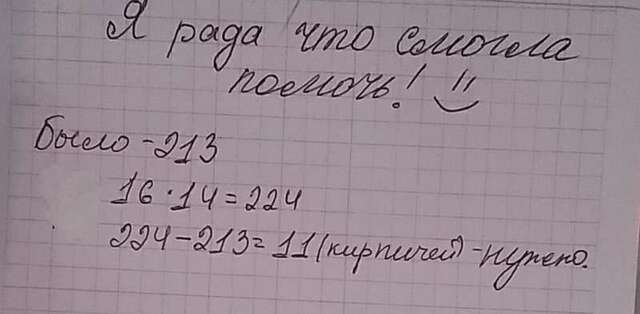 Я рада что смогла
помочь! "
Было - 213
16 · 14 = 224
224 - 213 = 11 (кирпичей) - нужно.